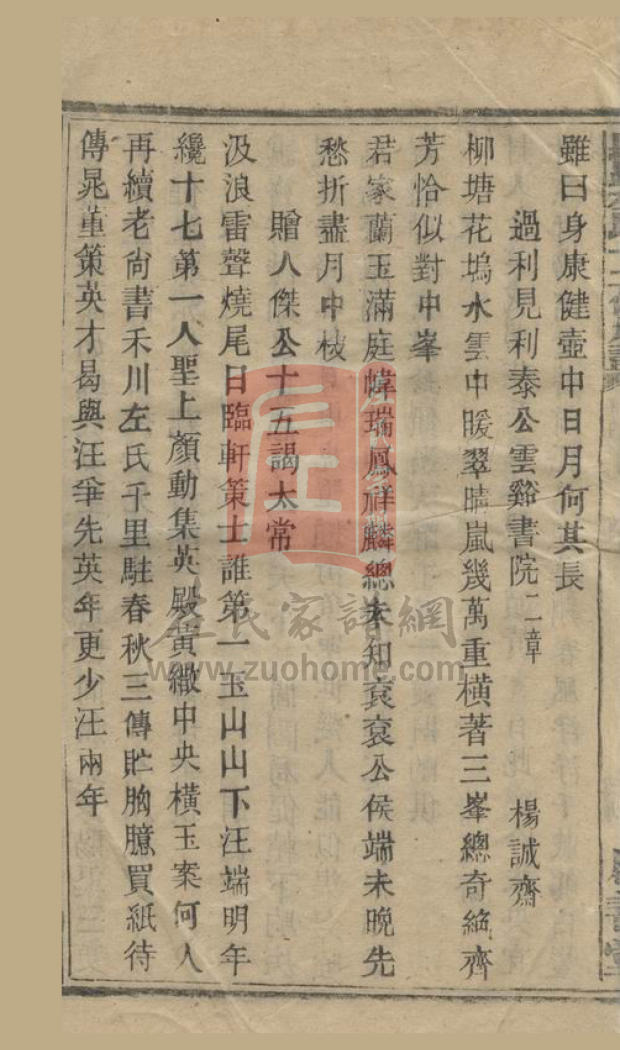 雖曰身康健壺中日月何其長
過利見利泰公雲谿書院二章 楊誠齋
柳塘花塢水雲中暖翠晴嵐幾萬重橫著三峯總奇絕齊
芳恰似對中峯
君家蘭玉滿庭幃瑞鳳祥麟總未知袞袞公侯端未晚先
愁折盡月中枝
贈人傑公十五謁太常
汲浪雷聲燒尾日臨軒策士誰第一玉山山下汪端明年
纔十七第一人聖上顏動集英殿黃繖中央橫玉案何人
再續老尙書禾川左氏千里駐春秋三傳貯胸臆買紙待
傳晁董策英才曷與汪爭先英年更少汪兩年
左氏家譜網
www.zuohome.com